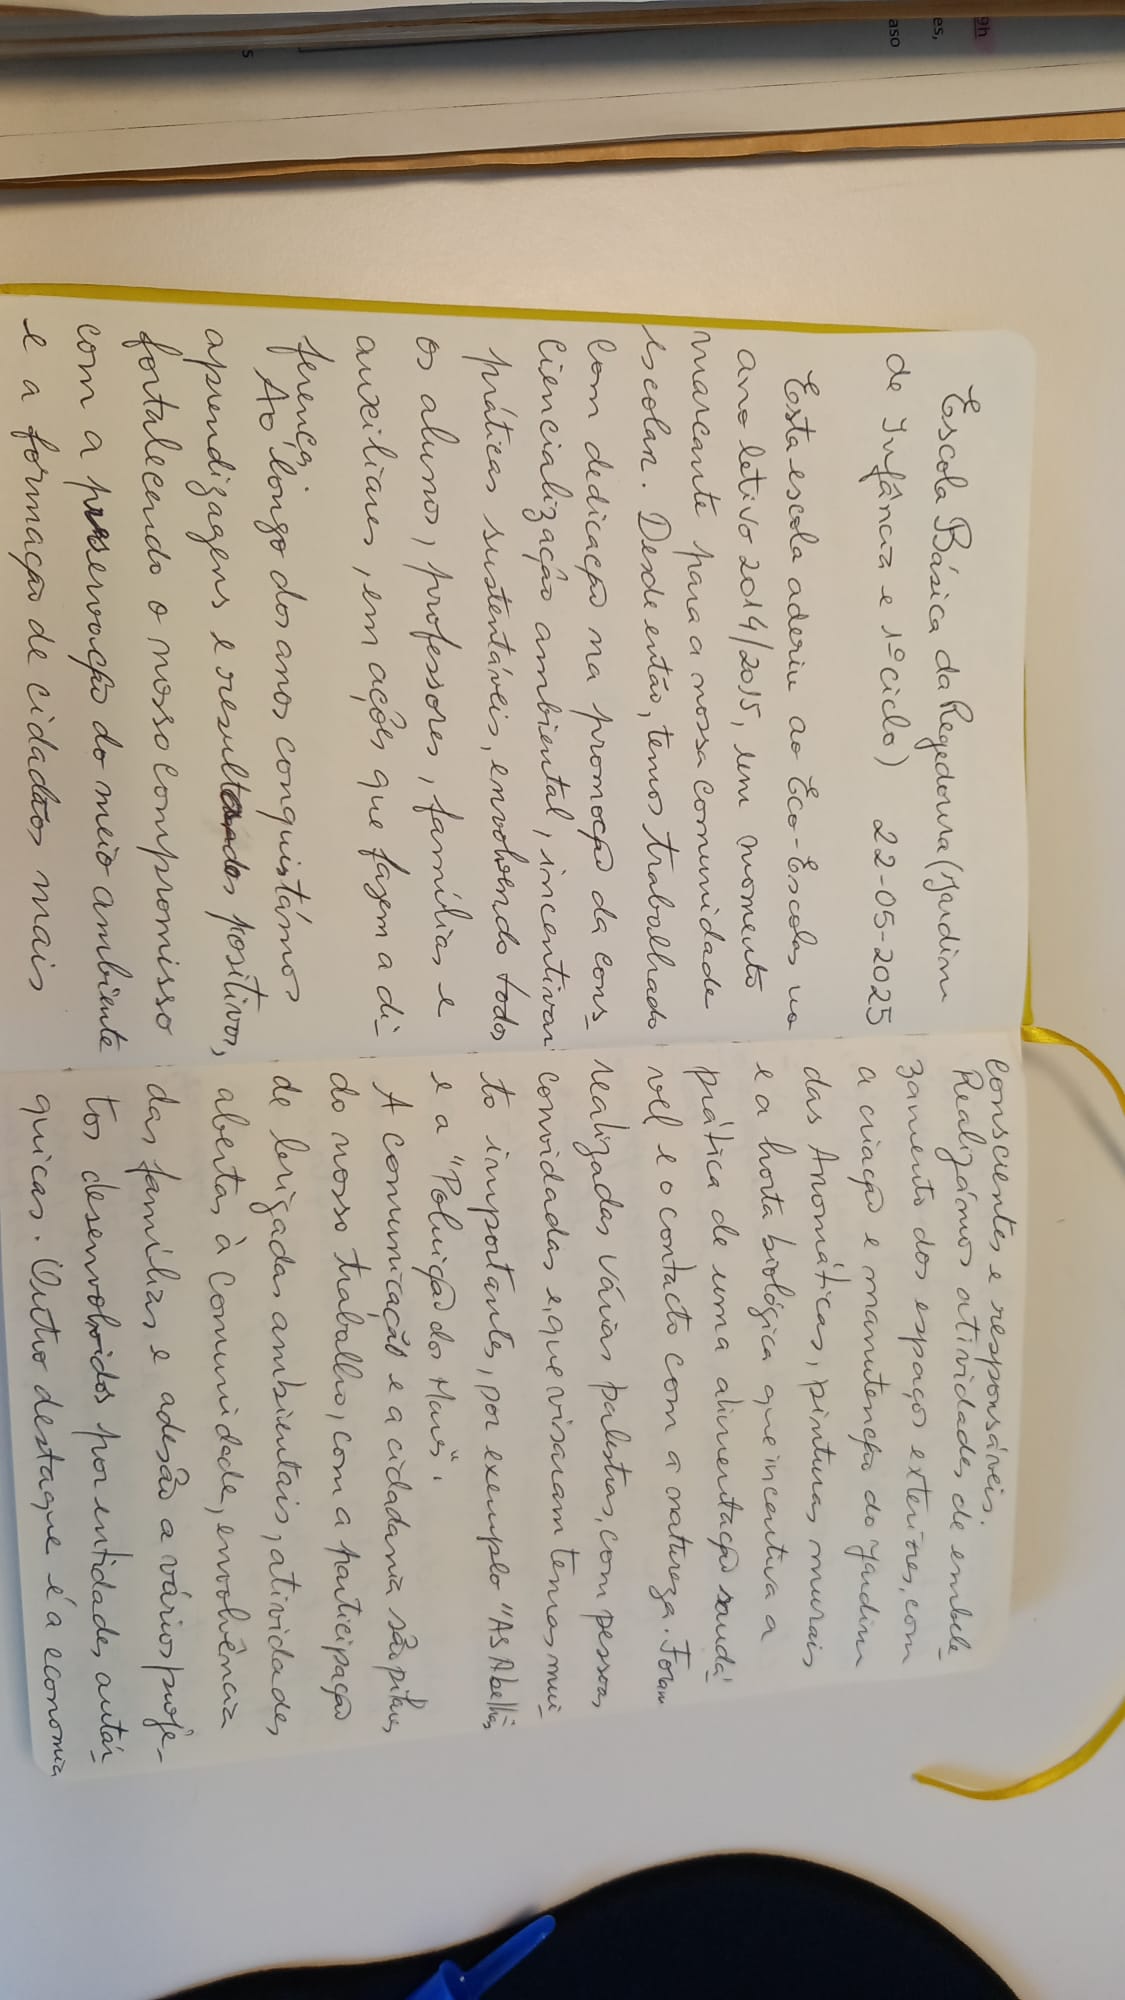 Escola Básica da Regedoura (Jardim
de Infância e 1º ciclo) 22-05-2025
Esta escola aderiu ao Eco-Escolas no
ano letivo 2014/2015, um momento
marcante para a nossa comunidade
escolar. Desde então, temos trabalhado
com dedicação na promoção da cons-
ciencialização ambiental, incentivar
práticas sustentáveis, envolvendo todos
os alunos, professores, famílias e
auxiliares, em ações que fazem a di-
ferença.
Ao longo dos anos conquistámos
aprendizagens e resultados positivos,
fortalecendo o nosso compromisso
com a preservação do meio ambiente
e a formação de cidadãos mais
conscientes e responsáveis.
Realizámos atividades de embele-
zamento dos espaços exteriores, com
a criação e manutenção do Jardim
das Aromáticas, pinturas murais
e a horta biológica que incentiva a
prática de uma alimentação saudá-
vel e o contacto com a natureza. Foram
realizadas várias palestras, com pessoas
convidadas e, que visaram temas mui-
to importantes, por exemplo "As Abelhas
e a "Poluição dos Mares".
A comunicação e a cidadania são pilares
do nosso trabalho, com a participação
de brigadas ambientais, atividades
abertas à comunidade, envolvência
das famílias e adesão a vários proje-
tos desenvolvidos por entidades autár-
quicas. Outro destaque é a economia
es,
aso
s